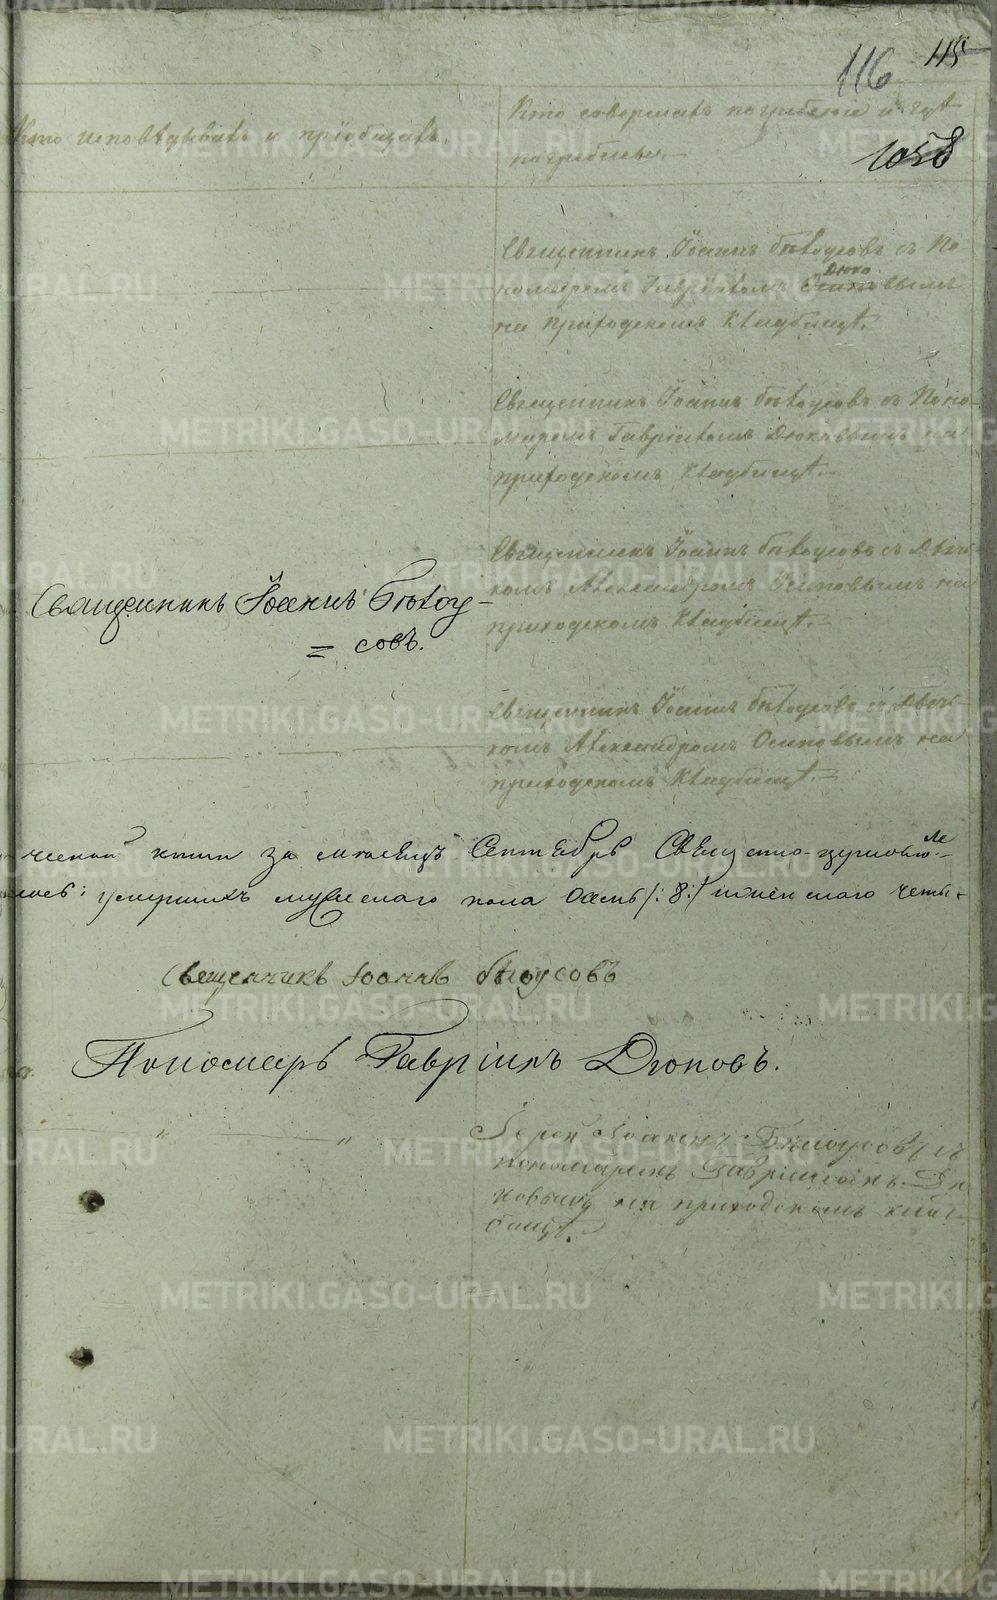 116 115
Кто исповѣдывалъ и пріобщалъ.
Кто совершалъ погребеніе и гдѣ
погребены.
1058
Священникъ Іоаннъ Бѣлоусовъ съ По
номаремъ Гавріиломъ Дюко
вымъ
на приходскомъ кладбищѣ.
Священникъ Іоаннъ Бѣлоусовъ съ Поно-
маремъ Гавріиломъ Дюковымъ на
приходскомъ кладбищѣ.
Священникъ Іоаннъ Бѣлоусовъ съ Дьяч-
комъ Александромъ Осиповымъ на
приходскомъ кладбищѣ.
Священникъ Іоаннъ Бѣлоу-
= совъ.
Священникъ Іоаннъ Бѣлоусовъ съ Дьяч-
комъ Александромъ Осиповымъ на
приходскомъ кладбищѣ.
ческой книги за мѣсяцъ Сентябрь Священно-церковно
умершихъ мужескаго пола осмь /: 8 :/ женскаго четы-
Священникъ Іоаннъ Бѣлоусовъ
Пономарь Гавріилъ Дюковъ.
Іерей Іоаннъ Бѣлоусовъ съ
пономаремъ Гавріиломъ Дю
ковымъ на приходскомъ клад-
бищѣ.
METRIKI.GASO-URAL.RU